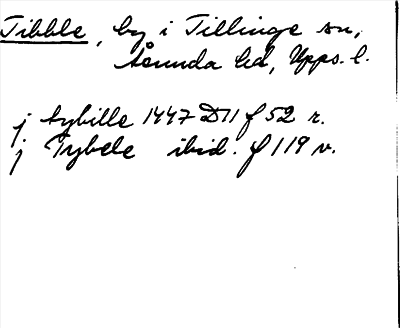 Tibble, by i Tillinge sn,
Åsunda hd, Upps. l.
j tybille 1447 D11 f 52 r.
j Tybele ibid. f 119 v.